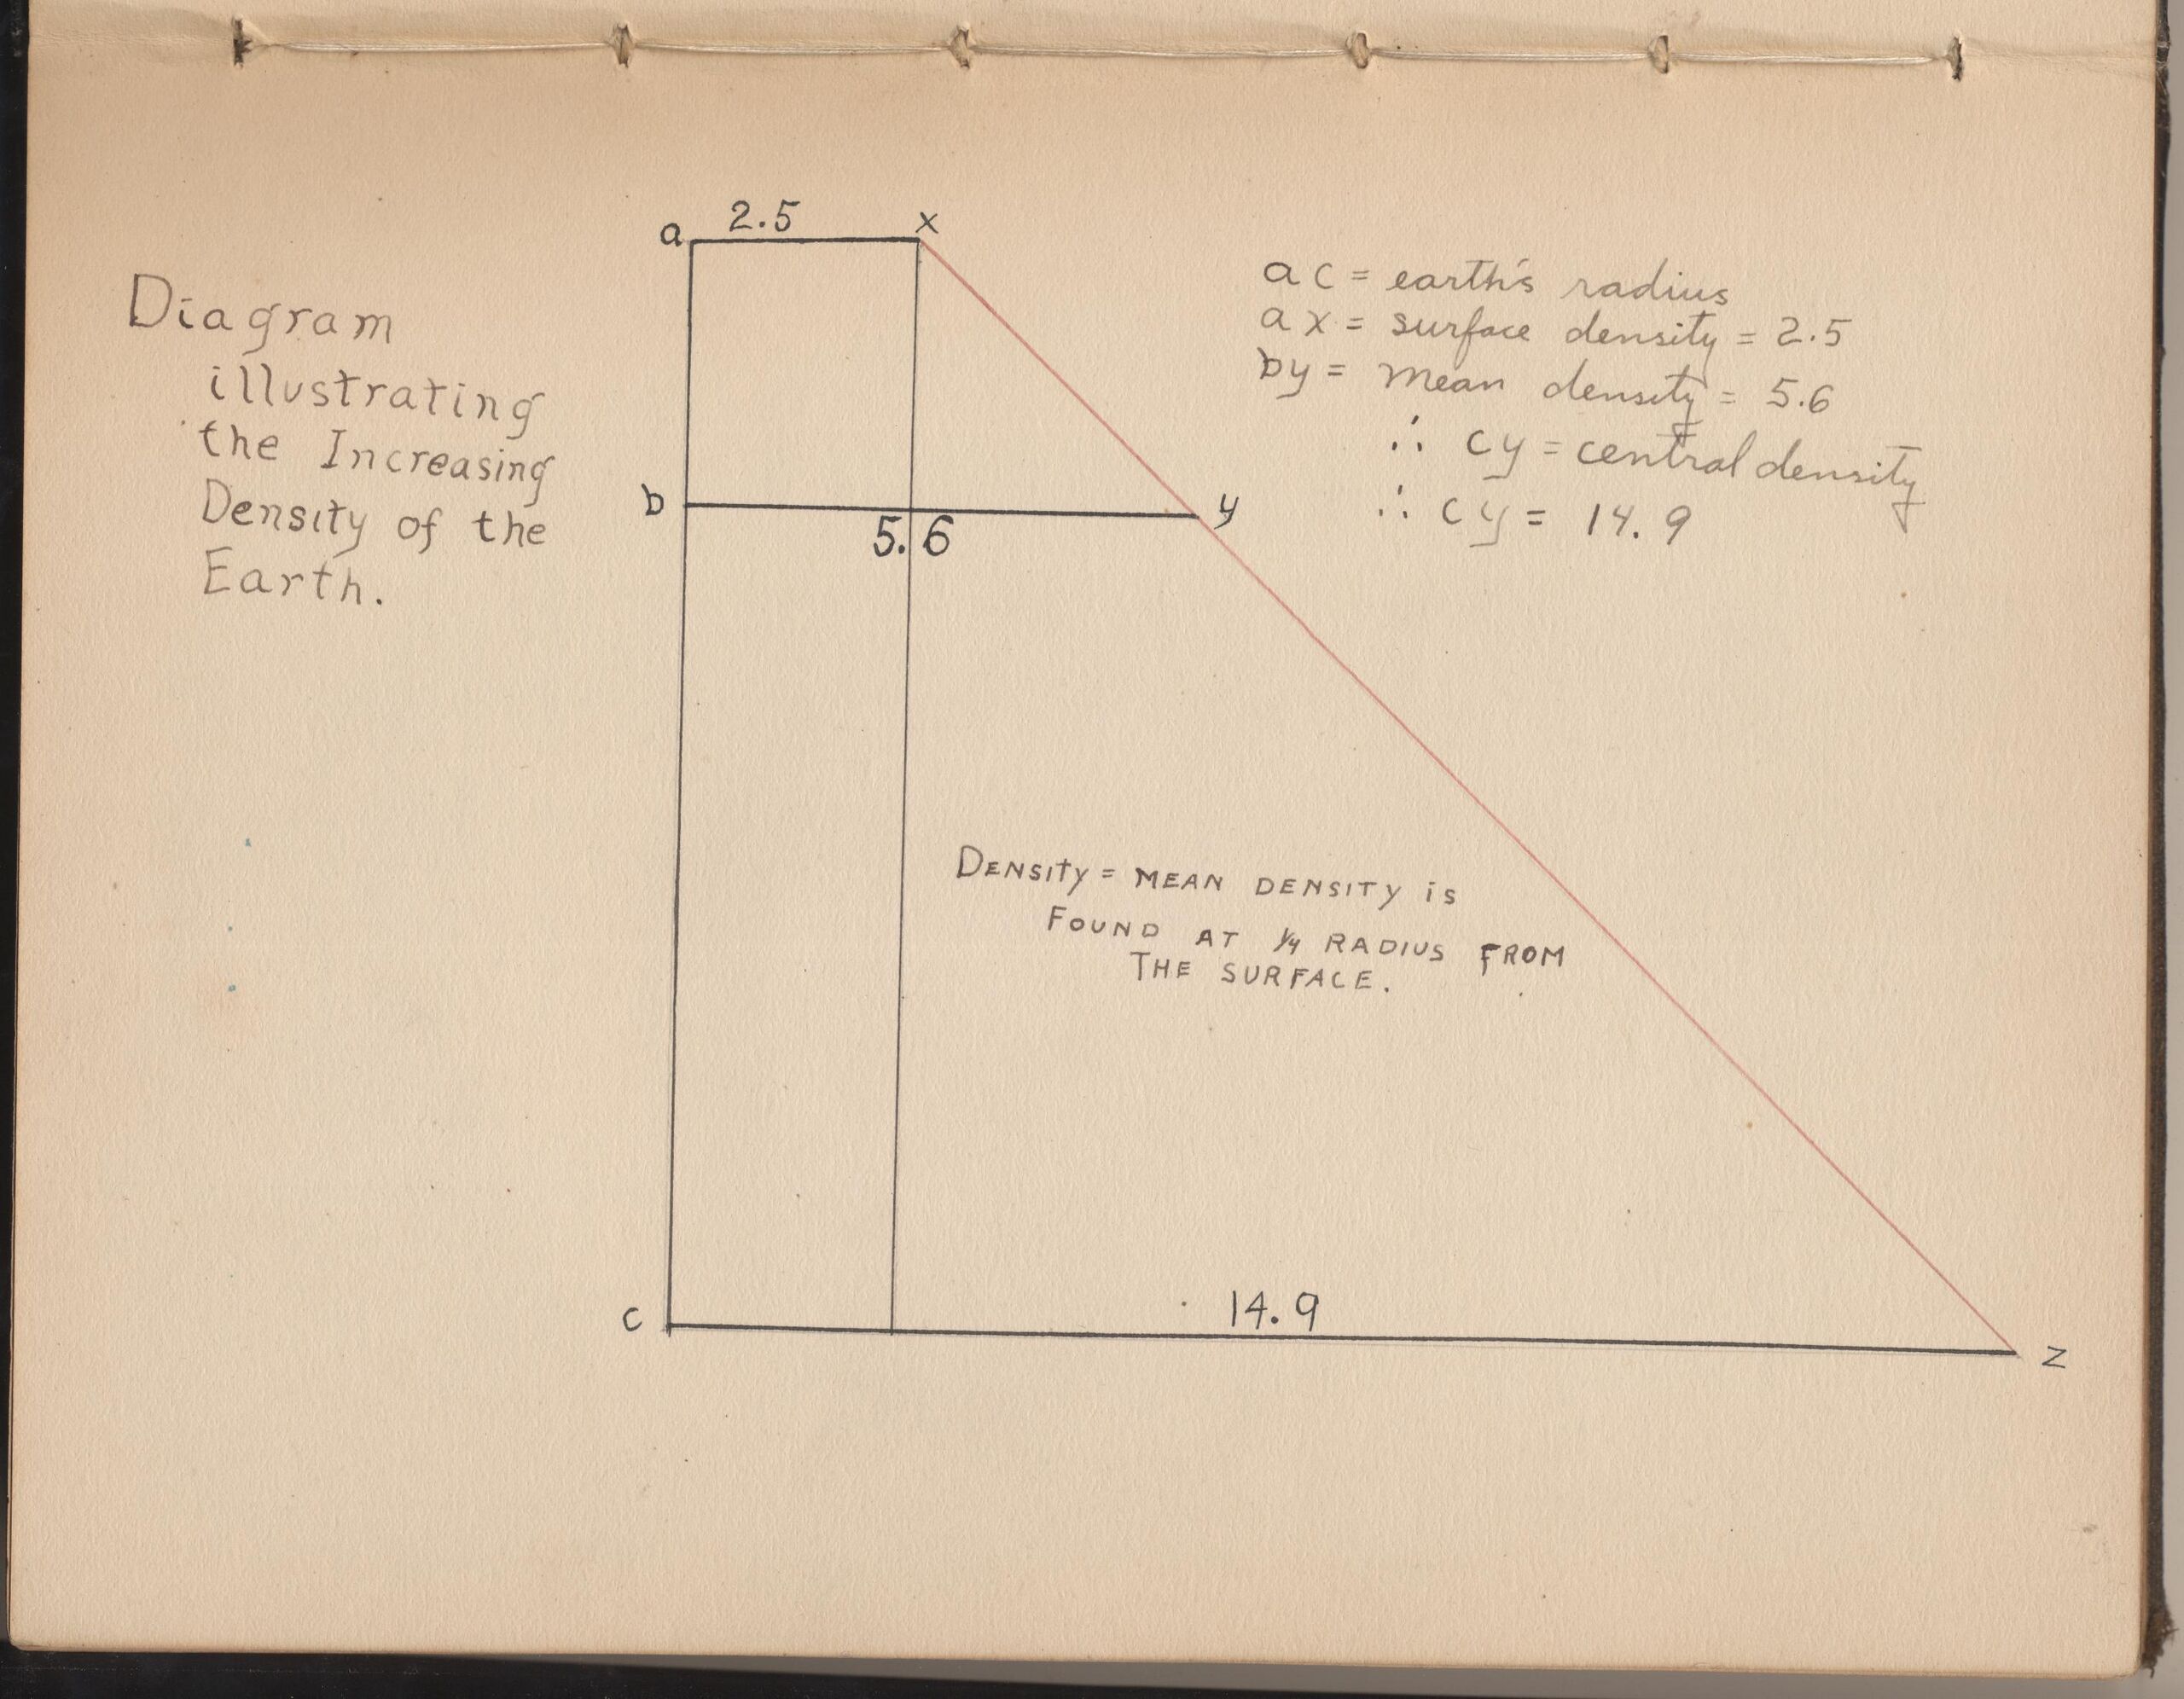 Diagram
illustrating
the Increasing
Density of the
Earth.
a 2.5 x
ac = earth's radius
ax = surface density = 2.5
by = mean density = 5.6
∴ cy = central density
∴ cy = 14.9
b y
5.6
Density = mean density is
Found at 1/4 radius from
The surface.
14.9
c z